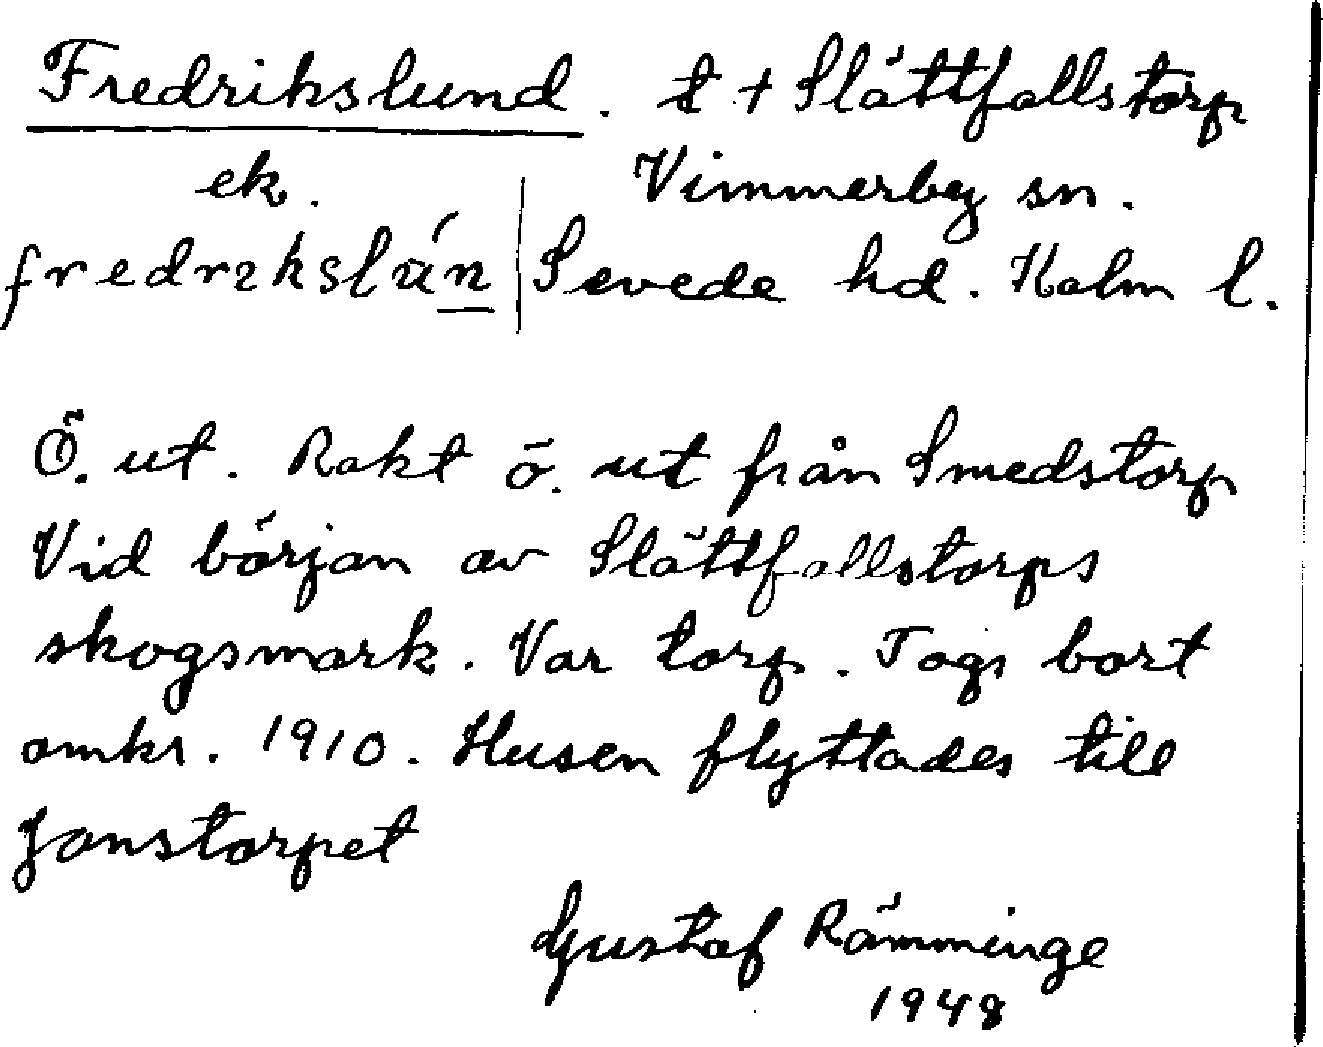 Fredrikslund. t + Slättfallstorp
ek. Vimmerby sn.
fredrikslún Sevede hd. Kalm l.
Ö. ut. Rakt ö. ut från Smedstorp
Vid början av Slättfallstorps
skogsmark. Var torp. Togs bort
omkr. 1910. Husen flyttades till
Jonstorpet
Gustaf Rämminge
1948